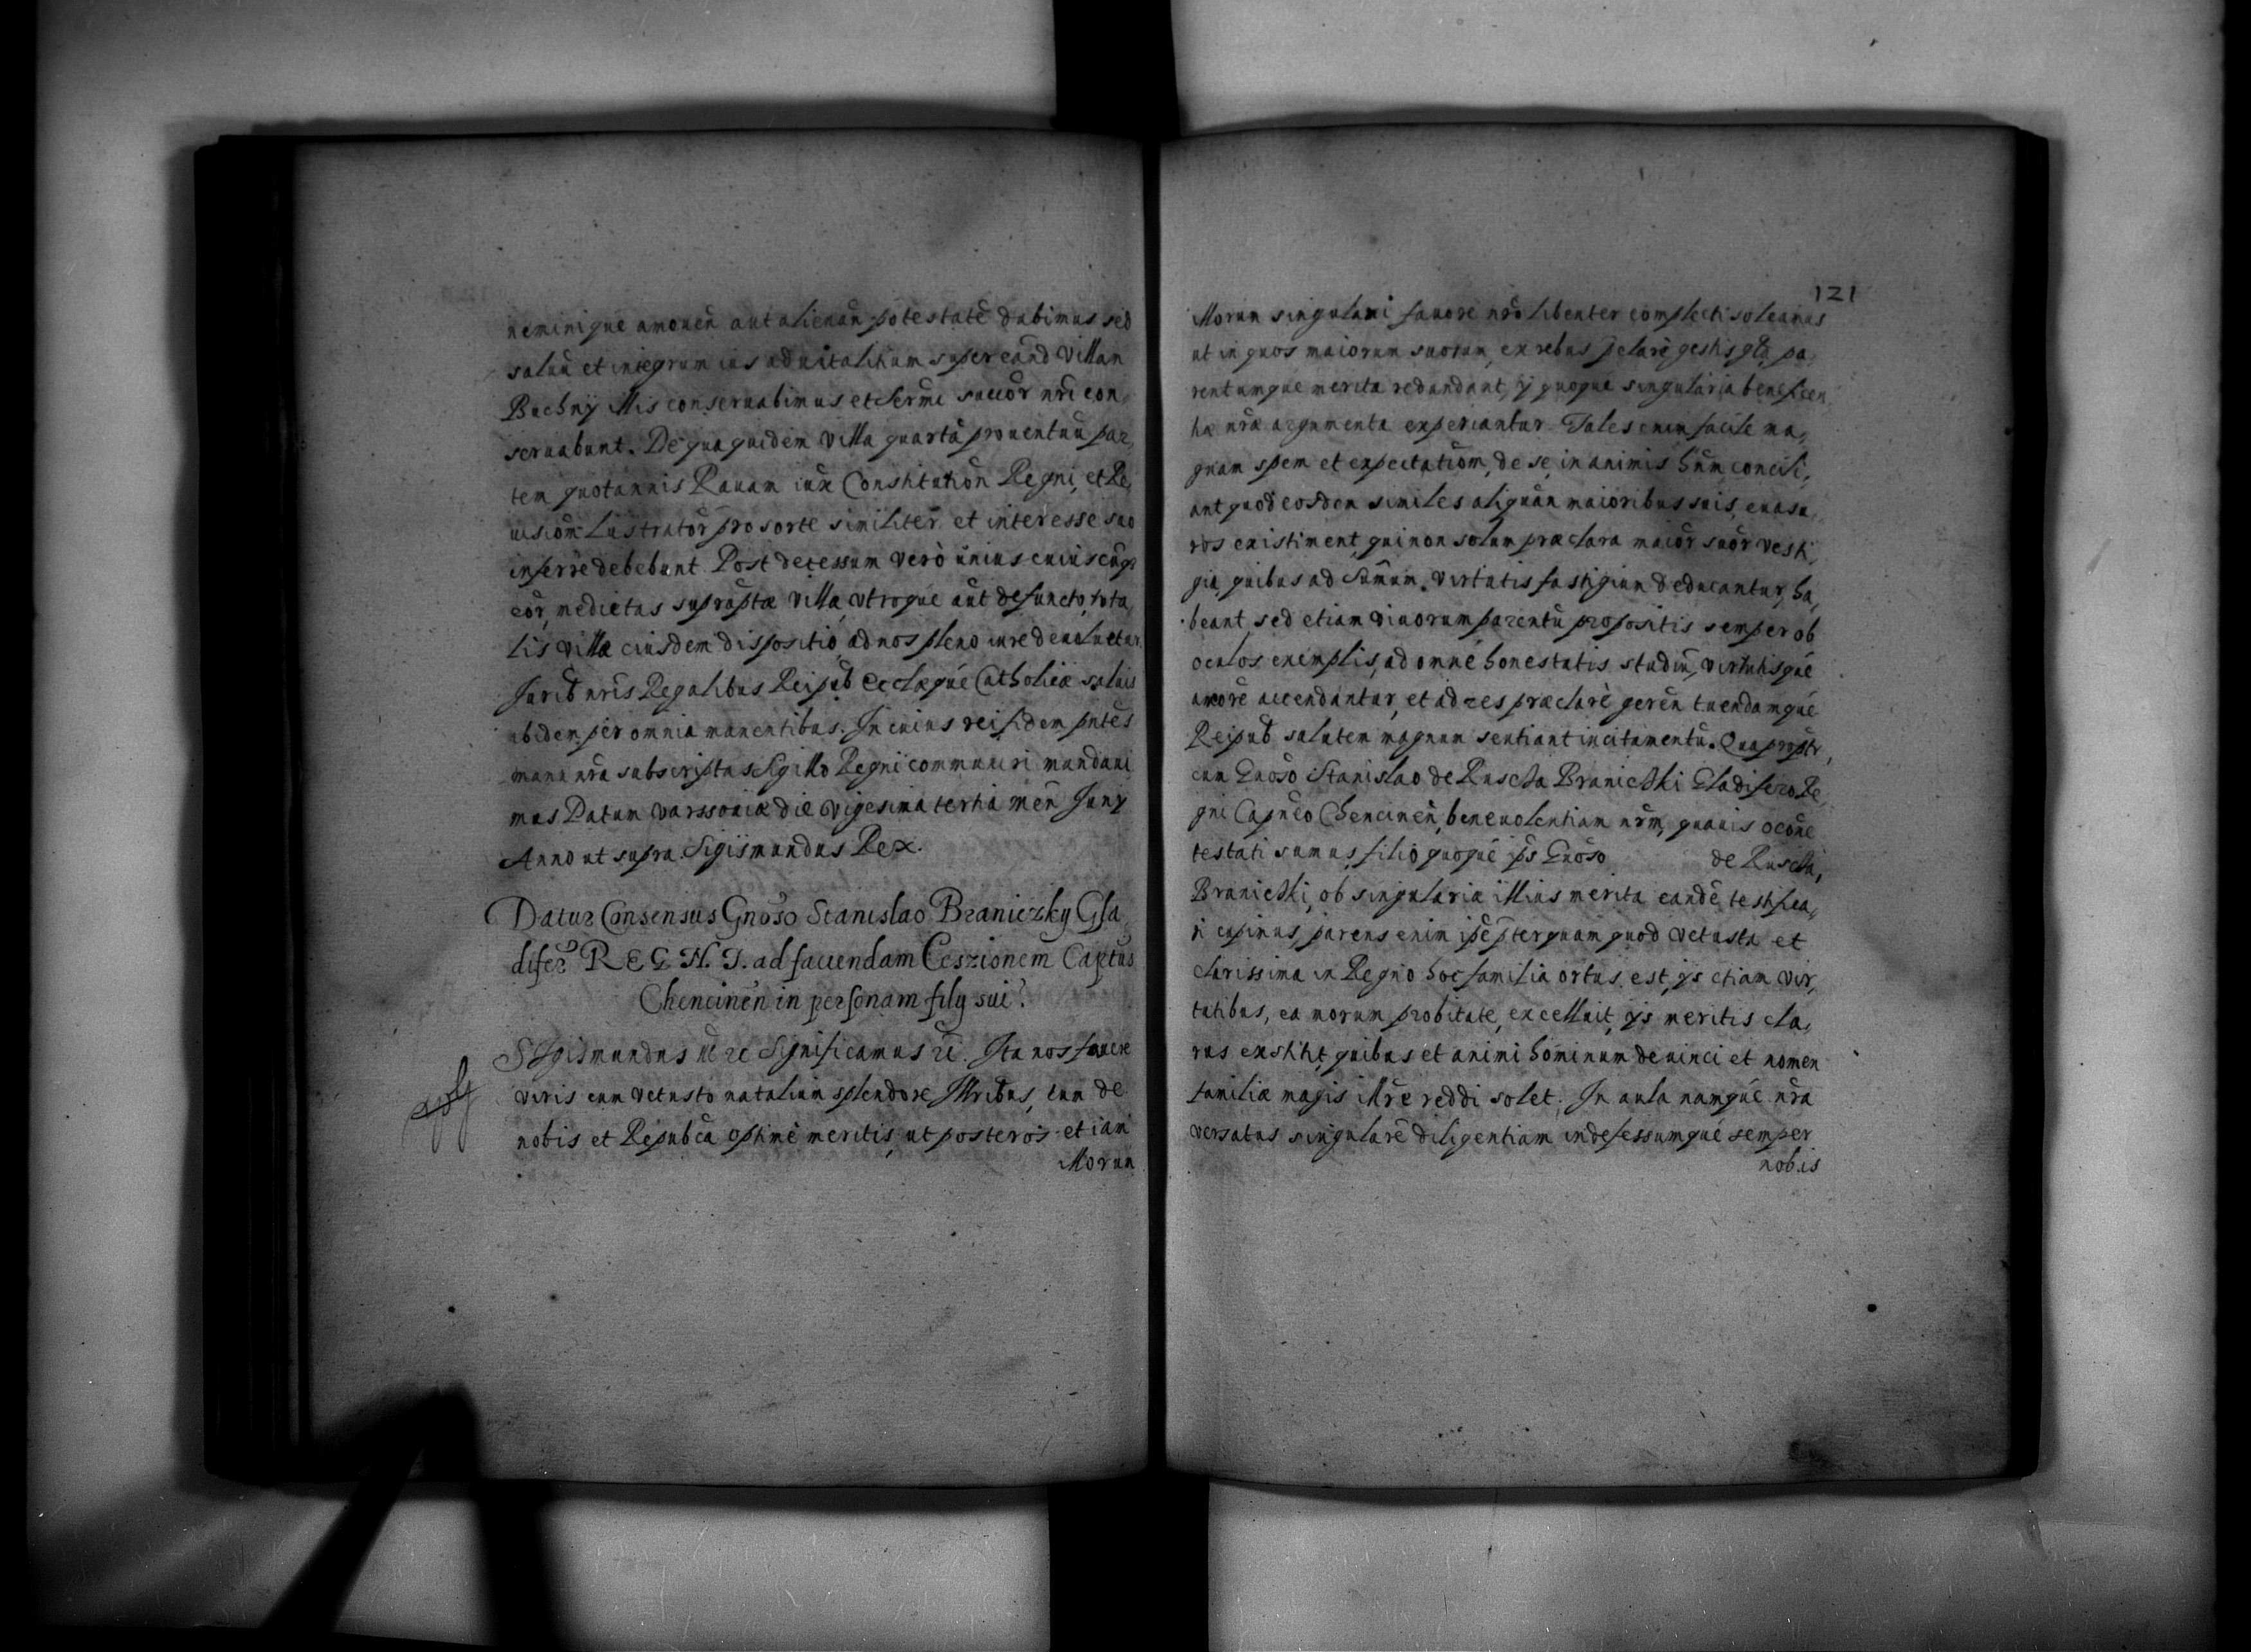 neminique amouen̄ aut alienan̄ potestatē dabimus sed
saluū et integrum ius aduitalitium super eand Villam
Buchny illis conseruabimus et Serm̄i succōr nr̄i con,
seruabunt. De qua quidem Villa quartā prouentuū par,
tem quotannis Rauam iux Constitution̄ Regni, et Re,
uisiom̄ Lustratōr pro sorte similiter et interesse suo
inferre debebunt. Post decessum verò unius cuiuscūq3
eōr, medietas supraptæ Villæ, vtroque aūt defuncto, tota,
lis villæ eiusdem dispositio ad nos pleno iure deuoluetur.
Jurib̄ nr̄is Regalibus Reipub̄ Ecclæqué Catholicæ saluis
ibidem per omnia manentibus. In cuius rei fidem pntēs
manu nr̄a subscriptas Sigillo Regni communiri mandaui
mus Datum Varssouiæ die Vigesima tertia men̄ Junÿ
Anno ut supra. Sigismundus Rex.
Datur Consensus Gnōso Stanislao Braniczky Gla
difer̄o REGNI. ad faciendam Ceszionem Captūs
Chencinēn in personam filÿ sui.
Sigismundus III rc Significamus rc. Ita nos fauere
viris cum vetusto natalium splendore Illribus, cum de
nobis et Repub̄ca optimè meritis, ut posteros etiam
Illorum
121
Illorum singulari fauore nr̄o libenter complecti soleamus
ut in quos maiorum suorum, ex rebus p̄clarè gestis gl̄a, pa,
rentumque merita redundant, ÿ quoqué singularia beneficen,
tiæ nr̄æ argumenta experiantur. Tales enim facile ma,
gnam spem et expectatiom̄, de se, in animis hūm concili,
ant quod eosdem similes aliquān maioribus suis, euasu,
ros existiment, qui non solum præclara maiōr suōr vesti,
gia, quibus ad Sum̄um Virtutis fastigium deducantur, ha,
beant, sed etiam viuorum parentū propositis semper ob
oculos exemplis, ad omnē honestatis studiū, Virtutisqué
amorē accendantur, et ad res præclarè geren̄ tuendamqué
Reipub̄ salutem magnum sentiant incitamentū. Quaproptr,
cum Gnōso Stanislao de Ruscha Branichki Gladifero Re,
gni Capnēo Chencinēn, beneuolentiam nr̄m, quauis occōne
testati sumus, filio quoqué ip̄s Gnōso de Ruscha,
Branichki, ob singularia illius merita eandē testifica,
ri cupimus, parens enim ip̄e p̄terquam quod Vetusta et
clarissima in Regno hoc familia ortus est, ÿs etiam vir,
tutibus, ea morum probitate, excelluit, ÿs meritis cla,
rus exstitit, quibus et animi hominum deuinci et nomen
familiæ magis illr̄e reddi solet. In aula namqué nr̄a
versatus singularē diligentiam indefessumqué semper
nobis